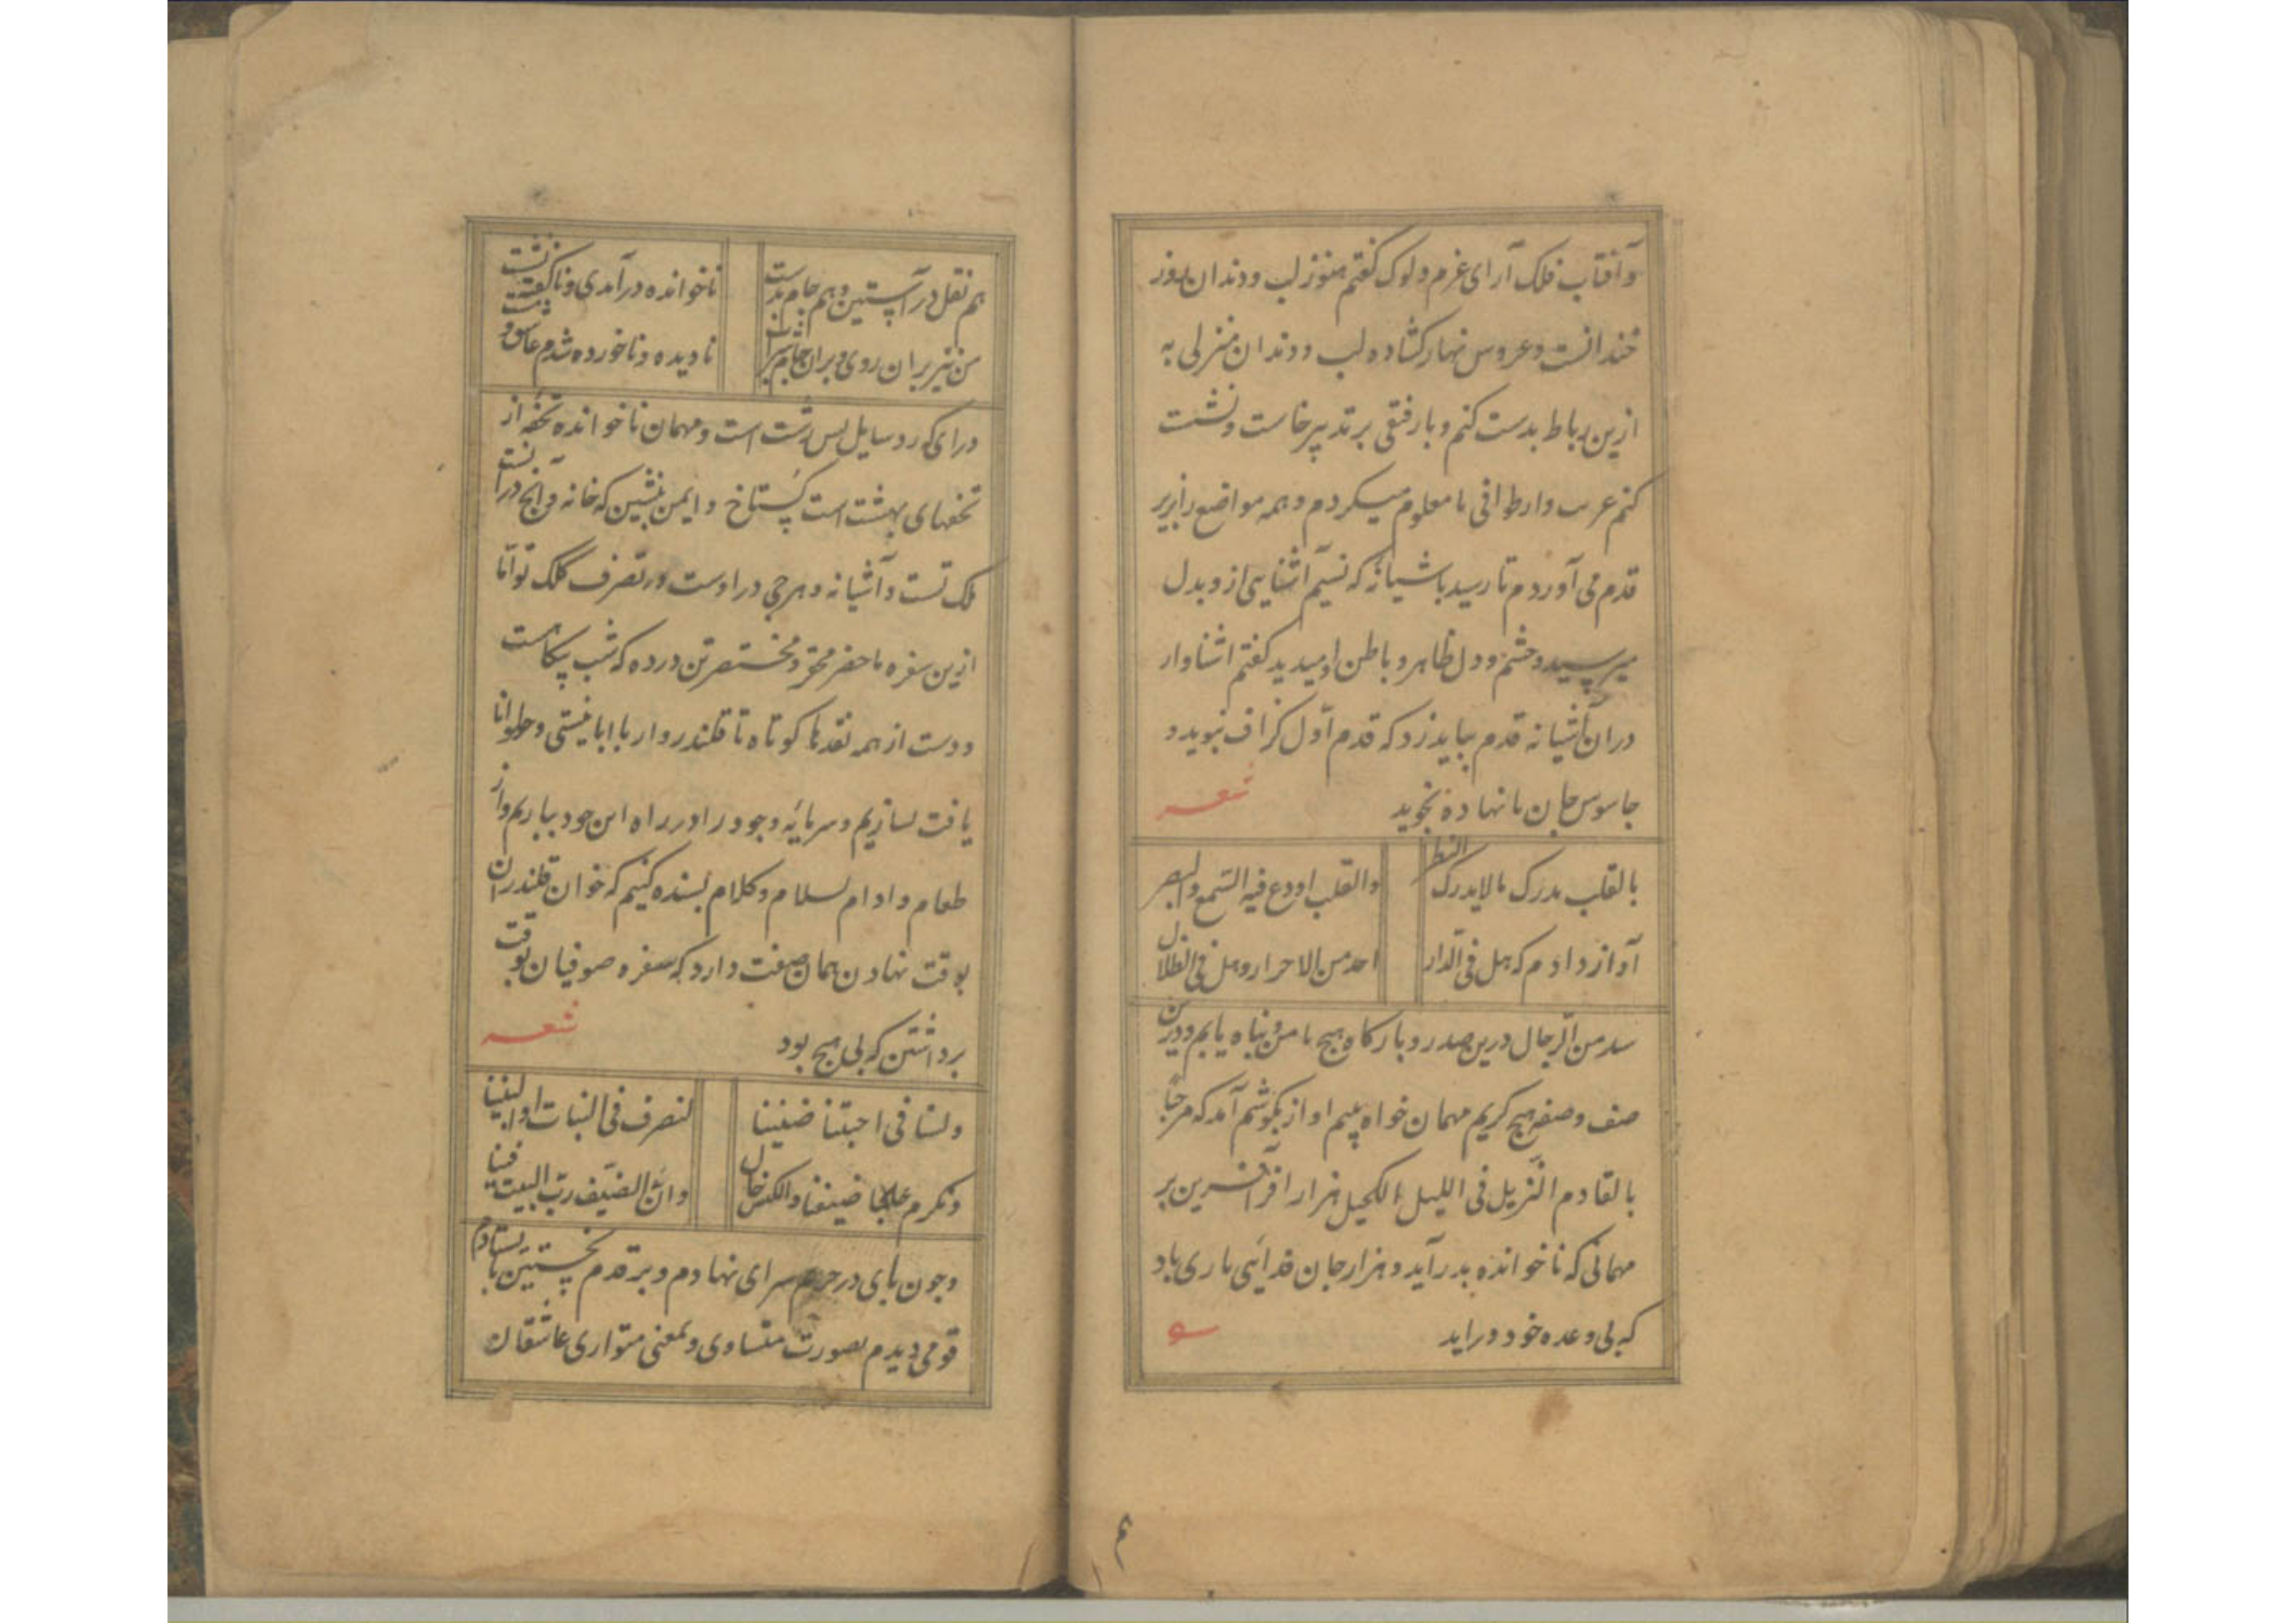 و آفتاب فلک آرای غرم دلوک گفتم هنوز لب و دندان روز
خندانست و عروس نهار گشاده لب و دندان منزلی به
ازین رباط بدست کنم و با رفتقی بر تدبیر خاست و نشست
کنم عرب وار طوافی نا معلوم میکردم و همه مواضع را زیر
قدم می آوردم تا رسید باشیانه که نسیم آشنایی ازو بدل
میرسید و چشم و دل ظاهر و باطن او میدید گفتم اشناوار
در آن آشیانه قدم بباید زد که قدم اول گزاف نپوید و
جاسوس جان نا نهاده نجوید شعر
بالقلب یدرک مالایدرک النظر والقلب اودع فیه السمع والبصر
آواز دادم که هل فی الدار احد من الاحرار و هل فی الظلال
سد من الرجال درین صدر و بارکاه هیچ مامن و پناه یابم و درین
صف و صفه هیچ کریم مهمان خواه بینم اواز بگوشم آمد که مرحبا
بالقادم النزیل فی اللیل الکحیل هزار آفرین بر
مهمانی که ناخوانده بدر آید و هزار جان فدایی یاری باد
که بی وعده خود دراید
هم نقل در آستین و هم جام بدست ناخوانده درآمدی و ناگفته نشست
من نیز بران روی و بران جام شراب نادیده و ناخورده شدم عاشق و مست
درای که رد سایل بس زشت است و مهمان ناخوانده تحفه از
تحفهای بهشت است گستاخ و ایمن بنشین که خانه و آنچ درانست
ملک تست و آشیانه و هرچ در اوست در تصرف کلک تو اما
ازین سفره ماحضر محقر و مختصرتن در ده که شب بیگاهست
و دست از همه نقدها کوتاه تا قلندروار با ابا نیستی و حلوا نا
یافت بسازیم و سرمایه وجود را در راه این جود ببازیم و از
طعام و ادام بسلام و کلام بسنده کنیم که خوان قلندران
بوقت نهادن همان صفت دارد که سفره صوفیان بوقت
برداشتن که بی هیچ بود شعر
ولسنا فی احبتنا ضنینا لنصرف فی البنات او البنینا
و نکرم ضیفنا والکاس خال و ان الضیف رب البیت فینا
و چون پای در حرم سرای نهادم و بر قدم نخستین باستادم
قومی دیدم بصورت متساوی و بمعنی متواری عاشقان